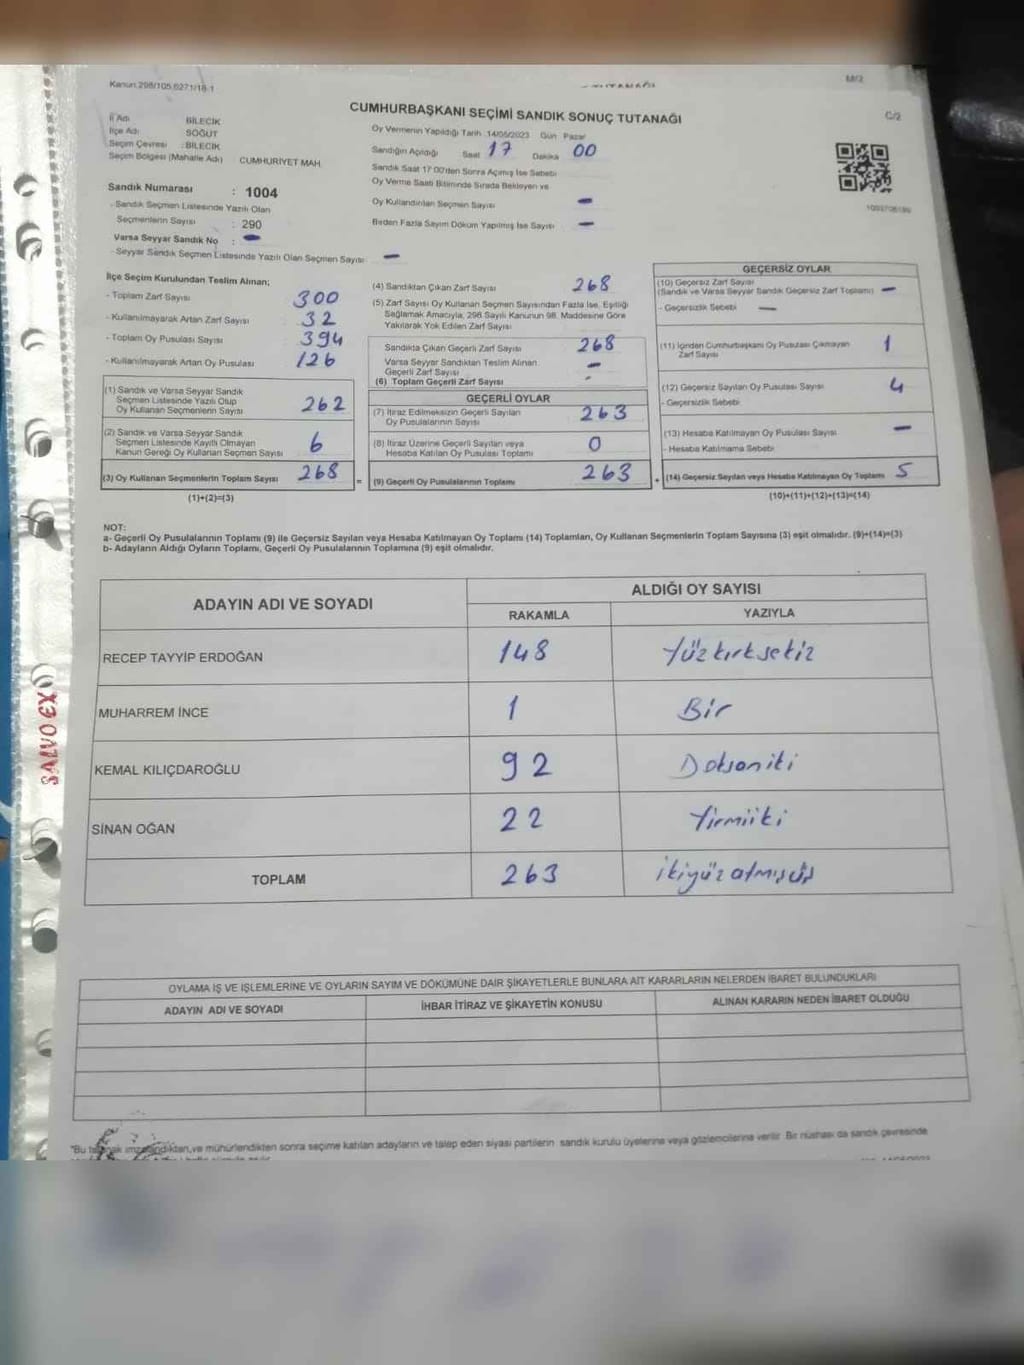 Kanun:298/105,6271/18-1
M/2
CUMHURBAŞKANI SEÇİMİ SANDIK SONUÇ TUTANAĞI
C/2
İl Adı BİLECİK
İlçe Adı SÖĞÜT
Seçim Çevresi : BİLECİK
Seçim Bölgesi (Mahalle Adı) CUMHURİYET MAH.
Oy Vermenin Yapıldığı Tarih :14/05/2023 Gün Pazar
Sandığın Açıldığı Saat 17 Dakika 00
Sandık Saat 17:00'den Sonra Açılmış İse Sebebi
Oy Verme Saati Bitiminde Sırada Bekleyen ve
Oy Kullandırılan Seçmen Sayısı -
Birden Fazla Sayım Döküm Yapılmış İse Sayısı -
Sandık Numarası : 1004
- Sandık Seçmen Listesinde Yazılı Olan
Seçmenlerin Sayısı : 290
Varsa Seyyar Sandık No : -
- Seyyar Sandık Seçmen Listesinde Yazılı Olan Seçmen Sayısı -
İlçe Seçim Kurulundan Teslim Alınan;
- Toplam Zarf Sayısı 300
- Kullanılmayarak Artan Zarf Sayısı 32
- Toplam Oy Pusulası Sayısı 394
- Kullanılmayarak Artan Oy Pusulası 126
(1) Sandık ve Varsa Seyyar Sandık
Seçmen Listesinde Yazılı Olup
Oy Kullanan Seçmenlerin Sayısı 262
(2) Sandık ve Varsa Seyyar Sandık
Seçmen Listesinde Kayıtlı Olmayan
Kanun Gereği Oy Kullanan Seçmen Sayısı 6
(3) Oy Kullanan Seçmenlerin Toplam Sayısı 268
(1)+(2)=(3)
(4) Sandıktan Çıkan Zarf Sayısı 268
(5) Zarf Sayısı Oy Kullanan Seçmen Sayısından Fazla İse, Eşitliği
Sağlamak Amacıyla, 298 Sayılı Kanunun 98. Maddesine Göre
Yakılarak Yok Edilen Zarf Sayısı
Sandıkta Çıkan Geçerli Zarf Sayısı 268
Varsa Seyyar Sandıktan Teslim Alınan
Geçerli Zarf Sayısı -
(6) Toplam Geçerli Zarf Sayısı -
GEÇERLİ OYLAR
(7) İtiraz Edilmeksizin Geçerli Sayılan
Oy Pusulalarının Sayısı 263
(8) İtiraz Üzerine Geçerli Sayılan veya
Hesaba Katılan Oy Pusulası Toplamı 0
= (9) Geçerli Oy Pusulalarının Toplamı 263
GEÇERSİZ OYLAR
(10) Geçersiz Zarf Sayısı
(Sandık ve Varsa Seyyar Sandık Geçersiz Zarf Toplamı) -
- Geçersizlik Sebebi -
(11) İçinden Cumhurbaşkanı Oy Pusulası Çıkmayan
Zarf Sayısı 1
(12) Geçersiz Sayılan Oy Pusulası Sayısı 4
- Geçersizlik Sebebi
(13) Hesaba Katılmayan Oy Pusulası Sayısı -
- Hesaba Katılmama Sebebi
+ (14) Geçersiz Sayılan veya Hesaba Katılmayan Oy Toplamı 5
(10)+(11)+(12)+(13)=(14)
NOT:
a- Geçerli Oy Pusulalarının Toplamı (9) ile Geçersiz Sayılan veya Hesaba Katılmayan Oy Toplamı (14) Toplamları, Oy Kullanan Seçmenlerin Toplam Sayısına (3) eşit olmalıdır. (9)+(14)=(3)
b- Adayların Aldığı Oyların Toplamı, Geçerli Oy Pusulalarının Toplamına (9) eşit olmalıdır.
ADAYIN ADI VE SOYADI
ALDIĞI OY SAYISI
RAKAMLA YAZIYLA
RECEP TAYYİP ERDOĞAN 148 Yüzkırksekiz
MUHARREM İNCE 1 Bir
KEMAL KILIÇDAROĞLU 92 Doksaniki
SİNAN OĞAN 22 Yirmiiki
TOPLAM 263 ikiyüzatmışüç
SALVO EX
OYLAMA İŞ VE İŞLEMLERİNE VE OYLARIN SAYIM VE DÖKÜMÜNE DAİR ŞİKAYETLERLE BUNLARA AİT KARARLARIN NELERDEN İBARET BULUNDUKLARI
ADAYIN ADI VE SOYADI İHBAR İTİRAZ VE ŞİKAYETİN KONUSU ALINAN KARARIN NEDEN İBARET OLDUĞU
"Bu imzalandıktan,ve mühürlendikten sonra seçime katılan adayların ve talep eden siyasi partilerin sandık kurulu üyelerine veya gözlemcilerine verilir. Bir nüshası da sandık çevresinde